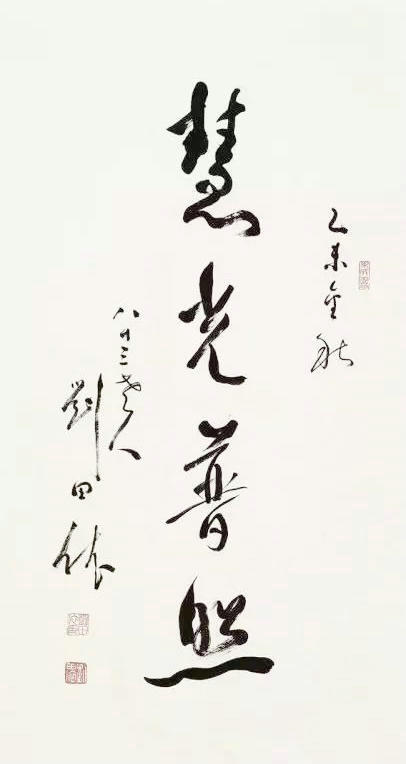 乙未金秋
慧光普照
八十三老人
劉田依